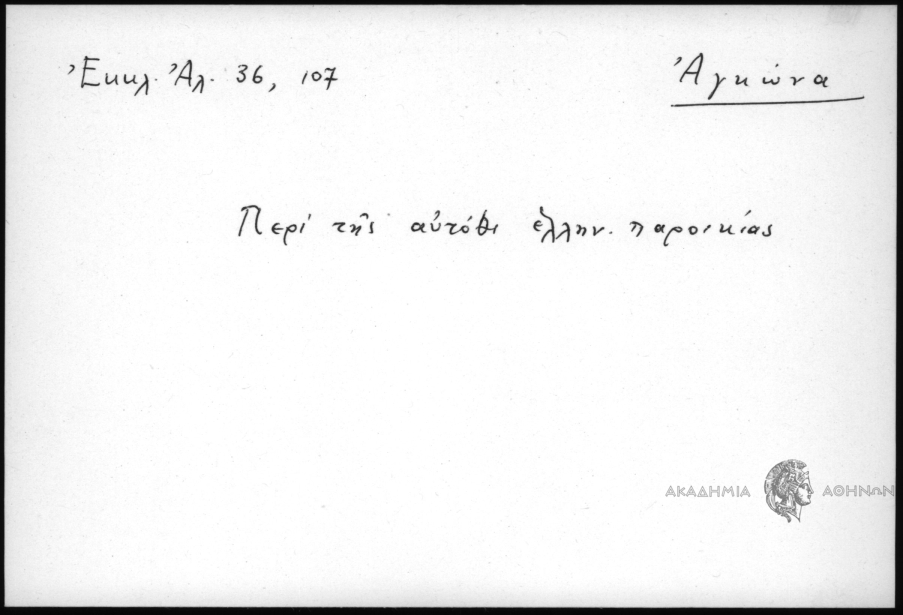 Ἐκκλ. Ἀλ. 36, 107
Ἀγκώνα
Περί τῆς αὐτόθι ἑλλην. παροικίας
ΑΚΑΔΗΜΙΑ ΑΘΗΝΩΝ